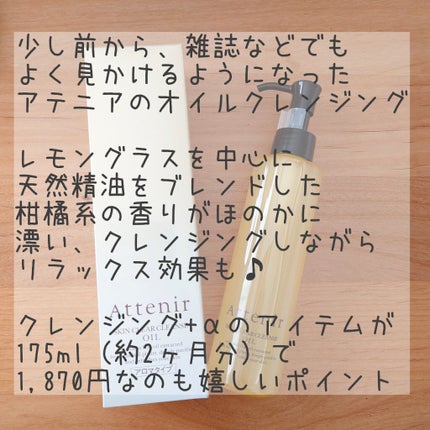 少し前から、雑誌などでも
よく見かけるようになった
アテニアのオイルクレンジング
レモングラスを中心に
天然精油をブレンドした
柑橘系の香りがほのかに
漂い、クレンジングしながら
リラックス効果も♪
クレンジング+αのアイテムが
175ml（約2ヶ月分）で
1,870円なのも嬉しいポイント
Attenir
SKIN CLEAR CLEANSE
OIL
アロマタイプ
Attenir